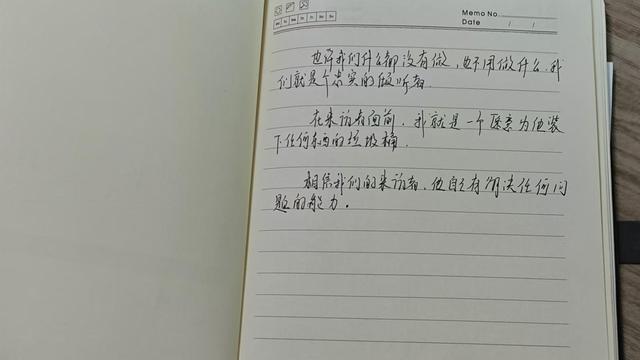 Memo No.
Date / /
Mo Tu We Th Fr Sa Su
也许我们什么都没有做，也不用做什么，我
们就是个忠实的倾听者.
在来访者面前，我就是一个愿意为他装
下任何东西的垃圾桶.
相信我们的来访者，他自己有解决任何问
题的能力。